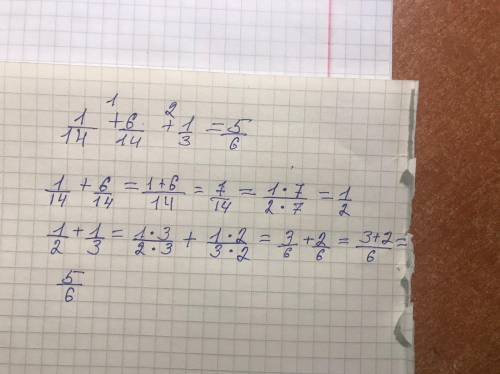 1 2
1/14 + 6/14 + 1/3 = 5/6
1/14 + 6/14 = 1+6/14 = 7/14 = 1·7/2·7 = 1/2
1/2 + 1/3 = 1·3/2·3 + 1·2/3·2 = 3/6 + 2/6 = 3+2/6 =
5/6